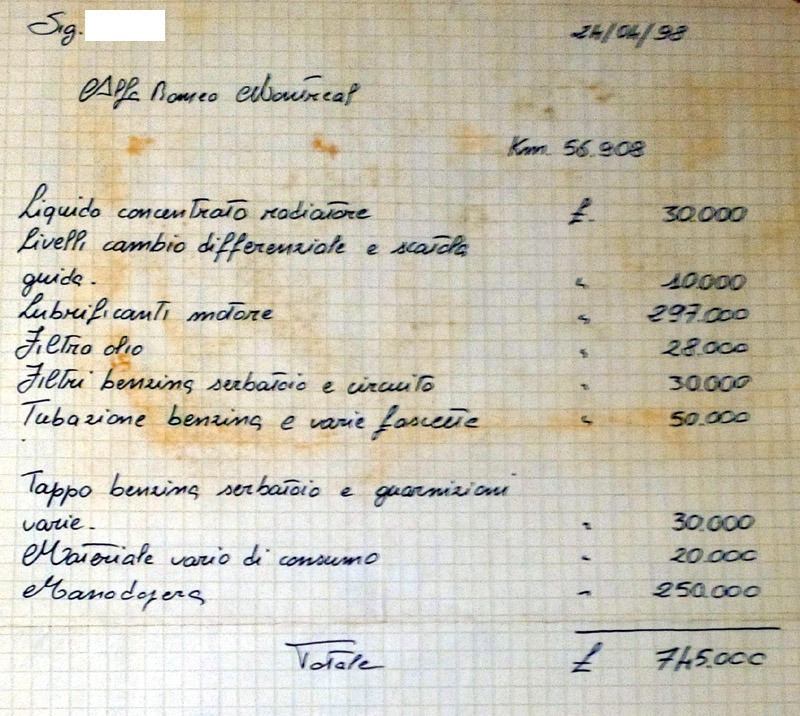 Sig.
24/04/98
Alfa Romeo Montreal
Km. 56.908
Liquido concentrato radiatore £. 30.000
Livelli cambio differenziale e scatola
guida. " 10.000
Lubrificanti motore " 297.000
Filtro olio " 28.000
Filtri benzina serbatoio e circuito " 30.000
Tubazione benzina e varie fascette " 50.000
Tappo benzina serbatoio e guarnizioni
varie. " 30.000
Materiale vario di consumo " 20.000
Manodopera " 250.000
Totale £ 745.000